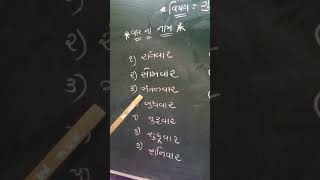 * વિષય :
* વાર ના નામ *
૧) રવિવાર
૨) સોમવાર
૩) મંગળવાર
બુધવાર
૫) ગુરુવાર
૬) શુક્રવાર
૭) શનિવાર